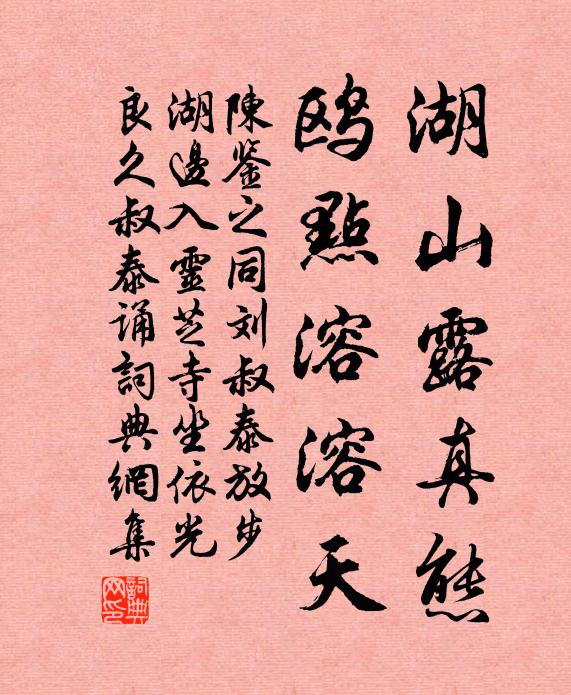 湖山露真態
鸥點溶溶天
陳鉴之同刘叔泰放步
湖邊入靈芝寺坐依光
良久叔泰诵詞典網集
詞典網印